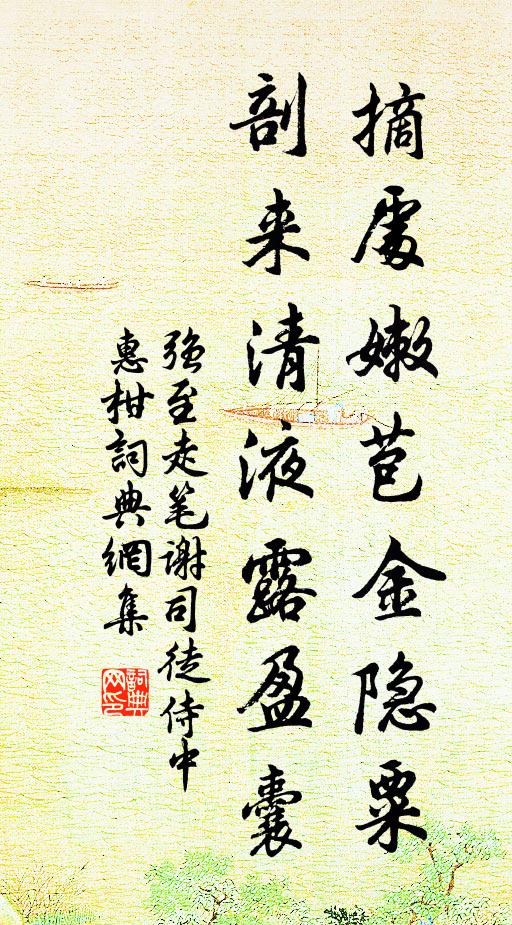 摘處嫩苞金隐粟
剖来清液露盈囊
强至走笔谢司徒侍中
惠柑詞典網集
詞典
网印